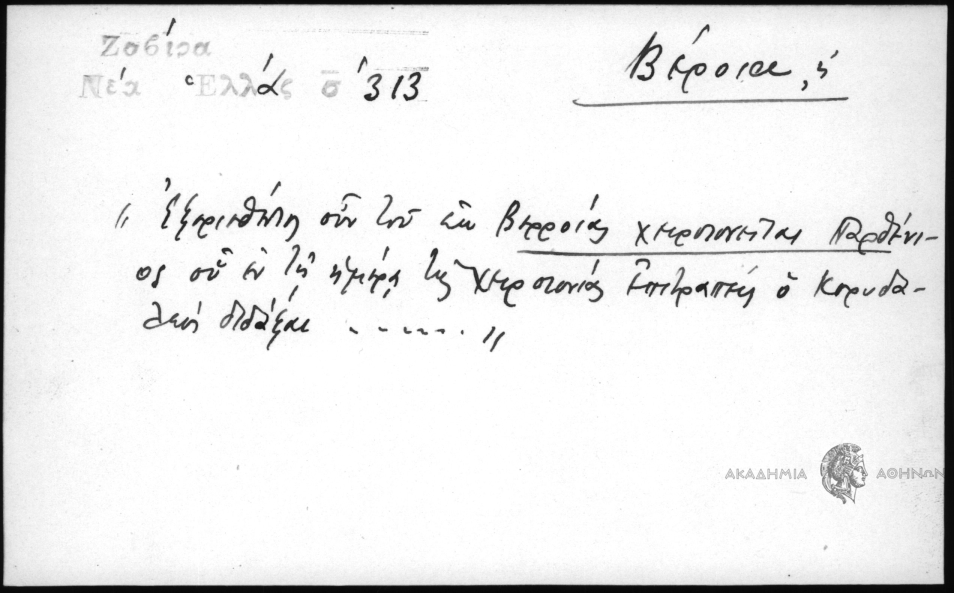 Ζαβίρα
Νέα Ἑλλάς σ 313
Βέροια, ἡ
"Ἐξορισθέντος οὖν τοῦ Βερροίας χειροτονεῖται Παρθένι-
ος οὗ ἐν τῇ ἡμέρᾳ τῆς χειροτονίας ἐπιτραπεὶς ὁ Κορυδα-
λεὺς διδάξαι ......."
ΑΚΑΔΗΜΙΑ ΑΘΗΝΩΝ